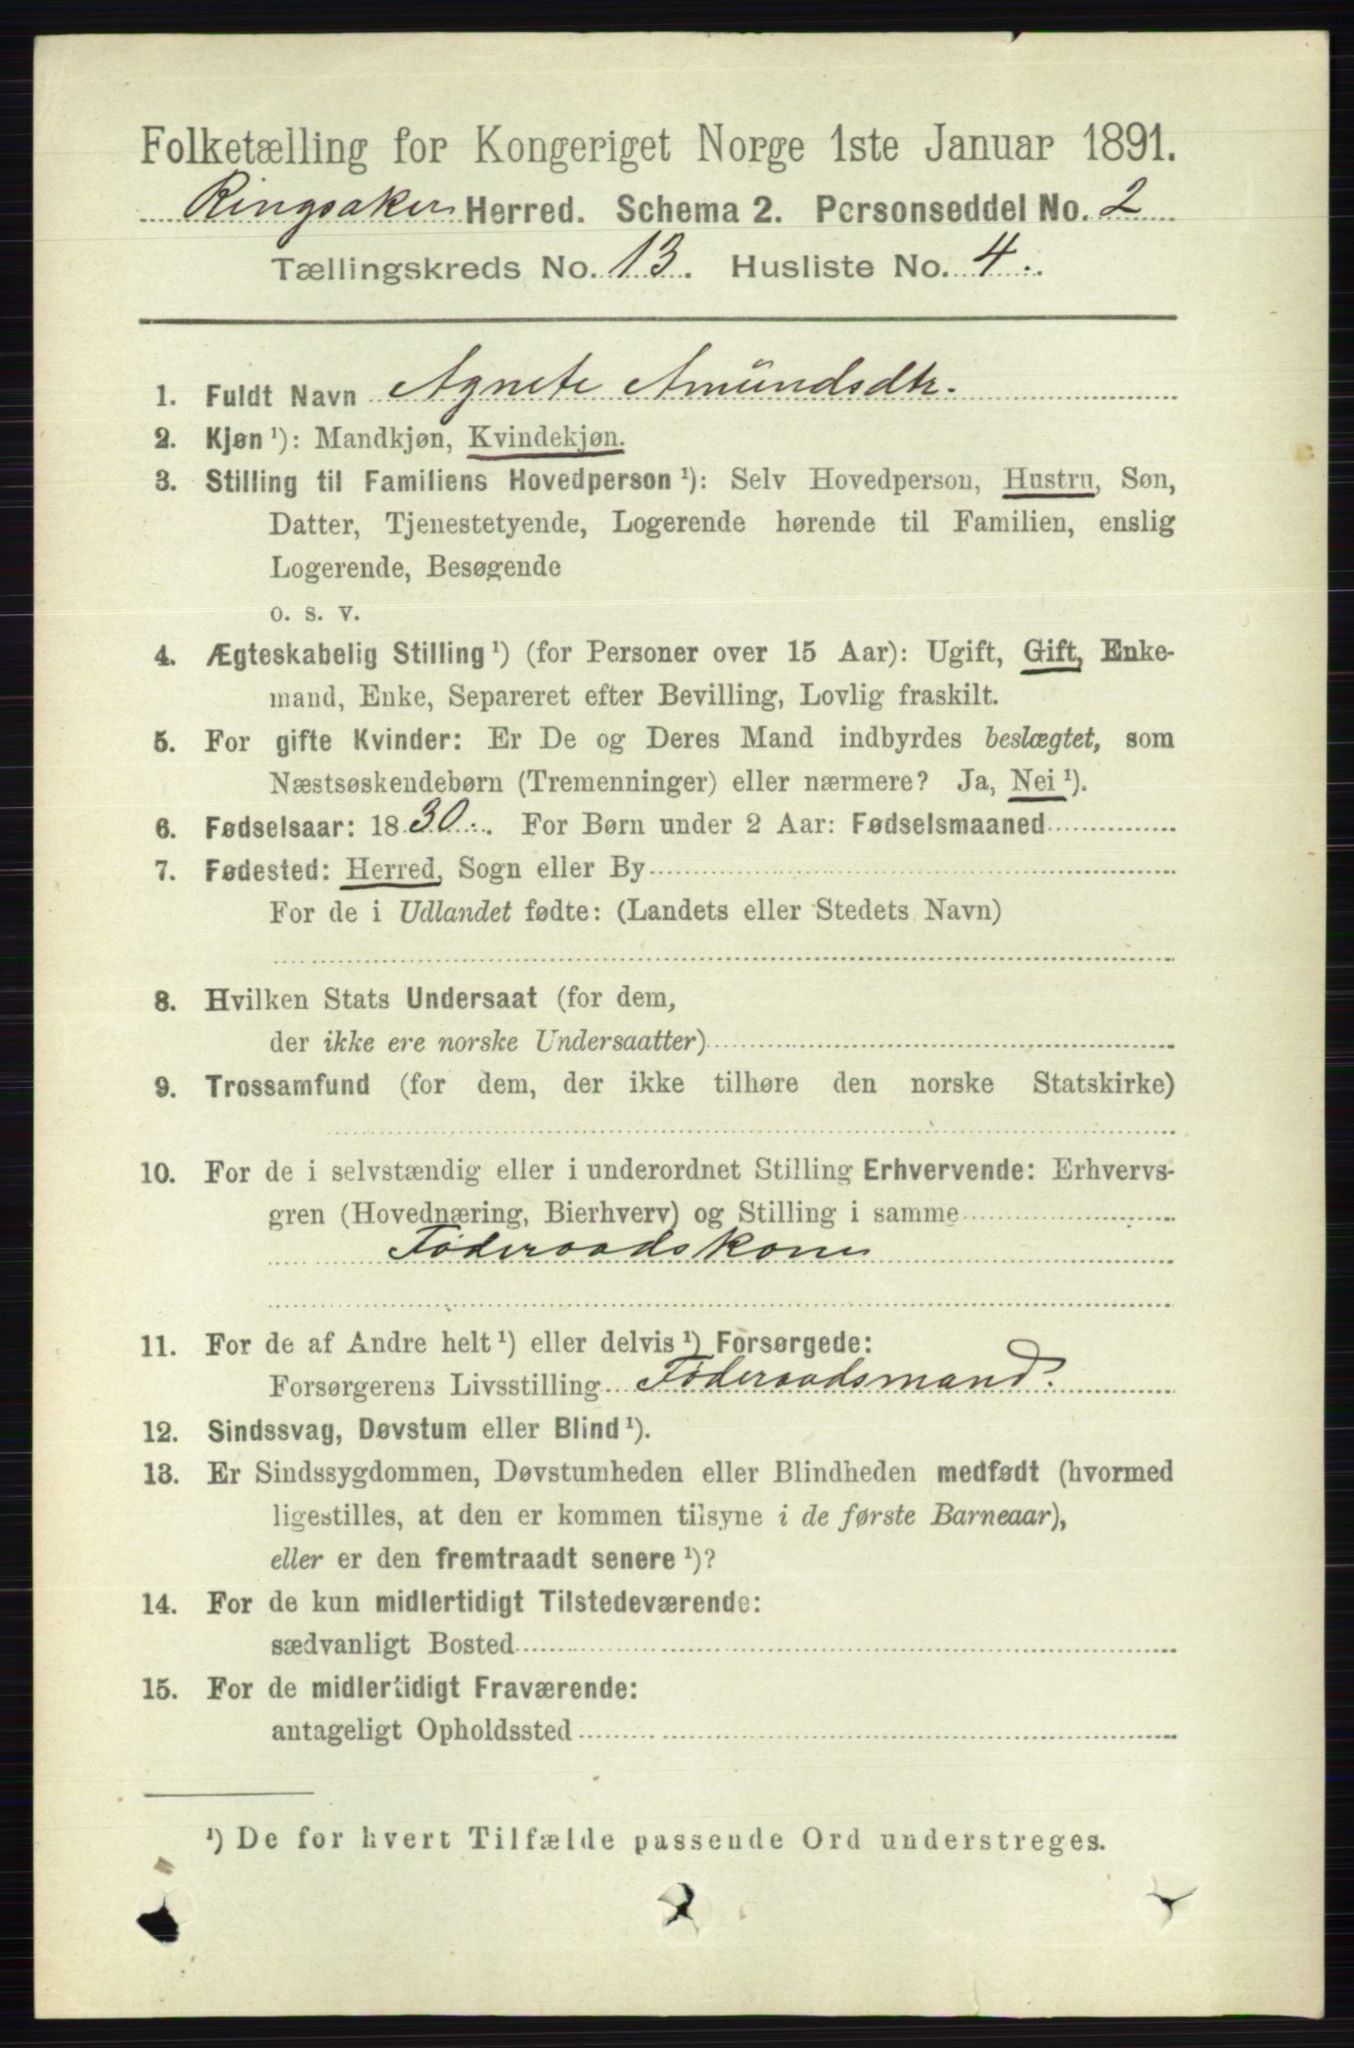 Folketælling for Kongeriget Norge 1ste Januar 1891.
Ringsaker Herred. Schema 2. Personseddel No. 2
Tællingskreds No. 13. Husliste No. 4.
1. Fuldt Navn Agnete Amundsdtr.
2. Kjøn ¹): Mandkjøn, Kvindekjøn.
3. Stilling til Familiens Hovedperson ¹): Selv Hovedperson, Hustru, Søn,
Datter, Tjenestetyende, Logerende hørende til Familien, enslig
Logerende, Besøgende
o. s. v.
4. Ægteskabelig Stilling ¹) (for Personer over 15 Aar): Ugift, Gift, Enke-
mand, Enke, Separeret efter Bevilling, Lovlig fraskilt.
5. For gifte Kvinder: Er De og Deres Mand indbyrdes beslægtet, som
Næstsøskendebørn (Tremenninger) eller nærmere? Ja, Nei ¹).
6. Fødselsaar: 1830. For Børn under 2 Aar: Fødselsmaaned
7. Fødested: Herred, Sogn eller By
For de i Udlandet fødte: (Landets eller Stedets Navn)
8. Hvilken Stats Undersaat (for dem,
der ikke ere norske Undersaatter)
9. Trossamfund (for dem, der ikke tilhøre den norske Statskirke)
10. For de i selvstændig eller i underordnet Stilling Erhvervende: Erhvervs-
gren (Hovednæring, Bierhverv) og Stilling i samme
Føderaadskone
11. For de af Andre helt ¹) eller delvis ¹) Forsørgede:
Forsørgerens Livsstilling Føderaadsmand.
12. Sindssvag, Døvstum eller Blind ¹).
13. Er Sindssygdommen, Døvstumheden eller Blindheden medfødt (hvormed
ligestilles, at den er kommen tilsyne i de første Barneaar),
eller er den fremtraadt senere ¹)?
14. For de kun midlertidigt Tilstedeværende:
sædvanligt Bosted
15. For de midlertidigt Fraværende:
antageligt Opholdssted
¹) De for hvert Tilfælde passende Ord understreges.